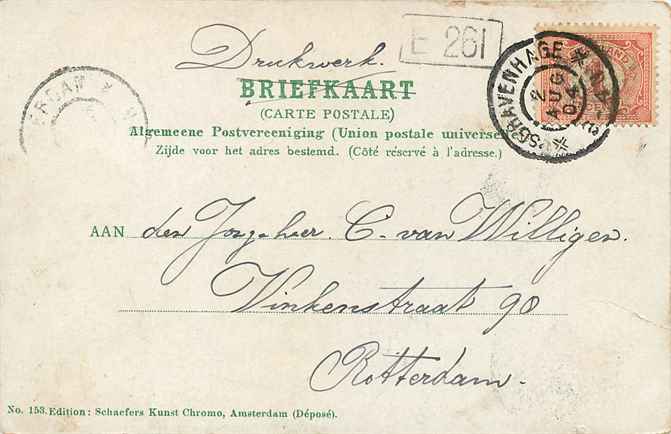 Drukwerk.
E 261
BRIEFKAART
(CARTE POSTALE)
Algemeene Postvereeniging (Union postale universelle)
Zijde voor het adres bestemd. (Côté réservé à l'adresse.)
'SGRAVENHAGE
2 AUG 04
AAN den Jongeheer C. van Willigen.
Vinkenstraat 90
Rotterdam.
No. 153. Edition: Schaefers Kunst Chromo, Amsterdam (Déposé).